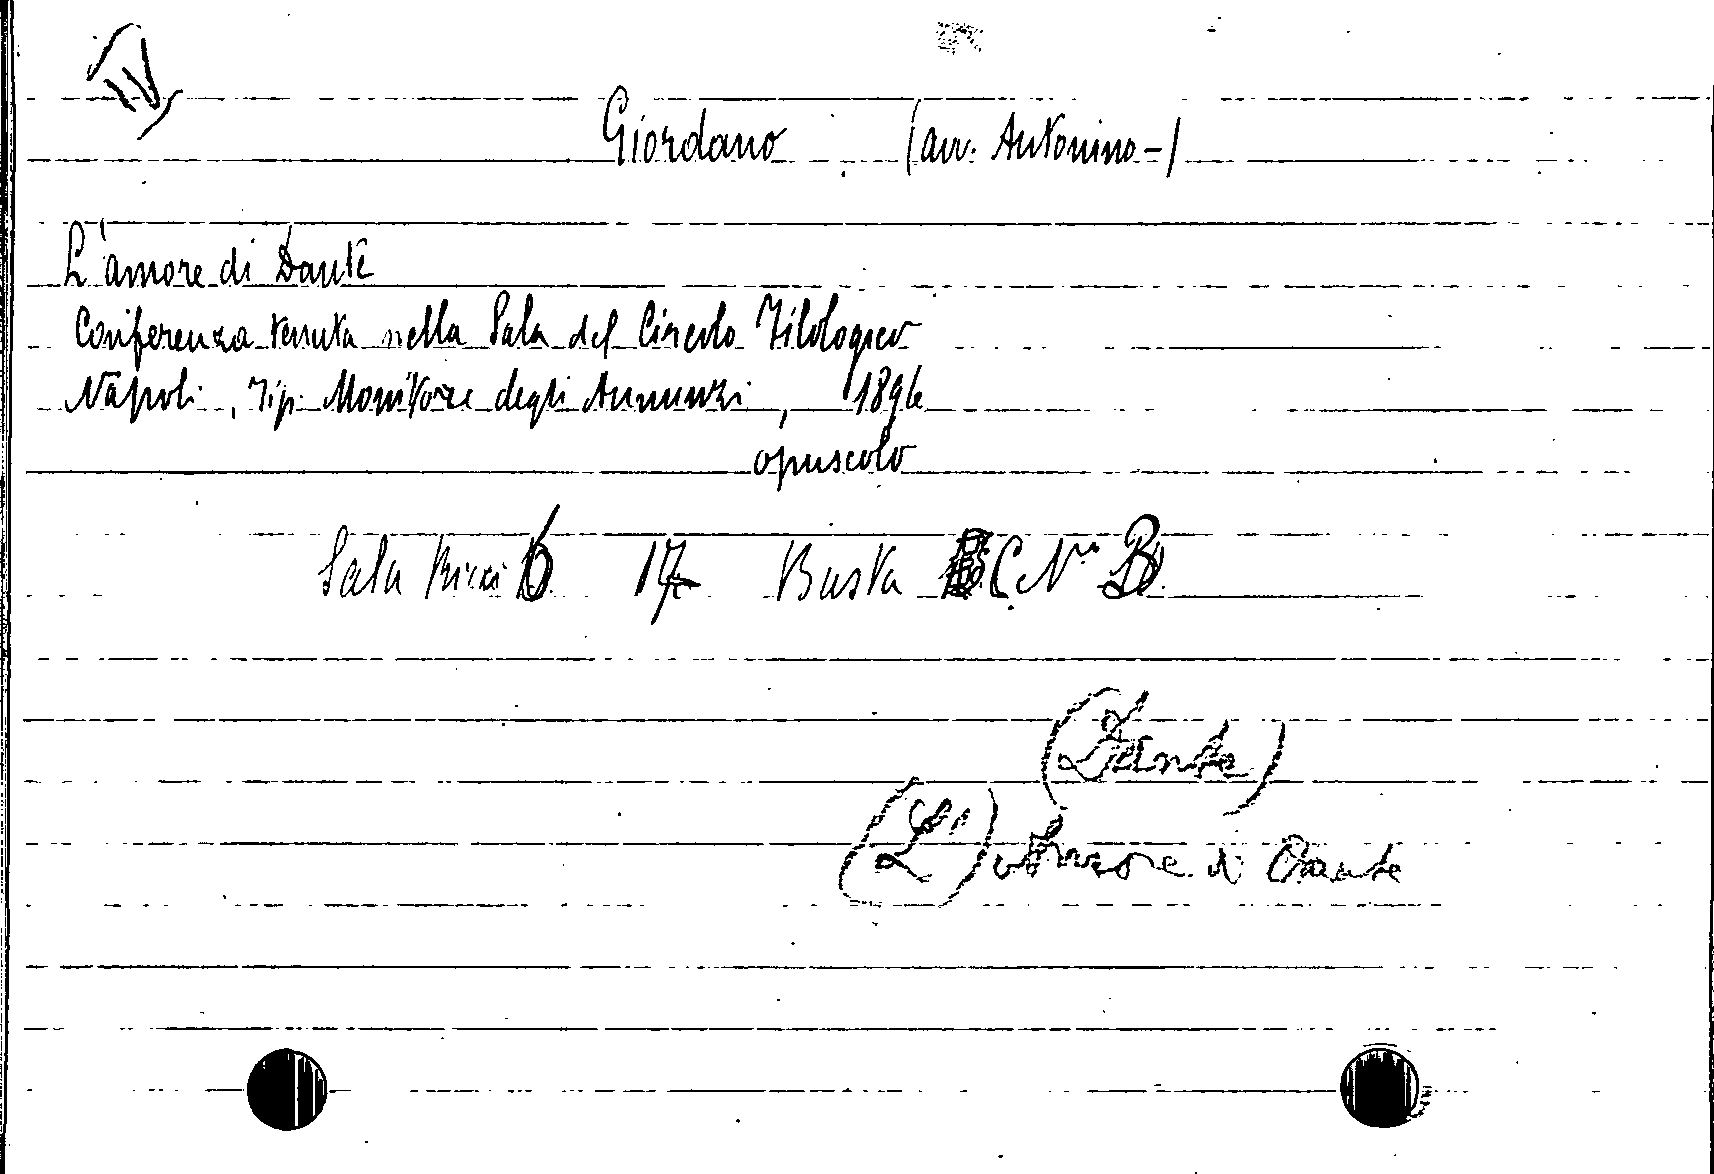 IV
Giordano (avv. Antonino-)
L'amore di Dante
Conferenza tenuta nella Sala del Circolo Filologico
Napoli, Tip. Monitore degli Annunzi, 1896
opuscolo
Sala Ricci 6 17 Busta C. N°
(Dante)
(L') Amore di Dante